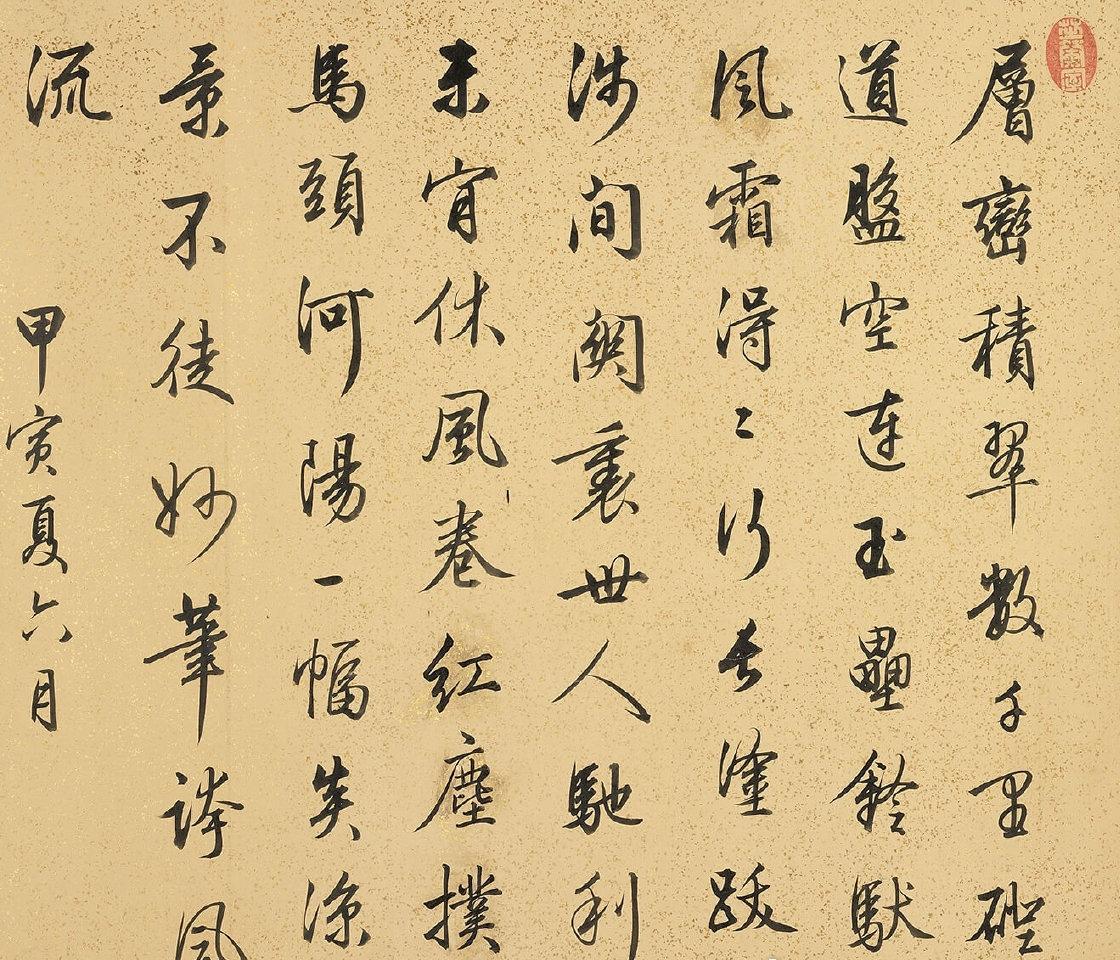 層巒積翠數千里磴
道盤空連玉壘鈴馱
風霜得得行長塗跋
涉間關裏世人馳利
未肯休風卷紅塵撲
馬頭河陽一幅矣涼
景不徒妙筆誇風
流
甲寅夏六月